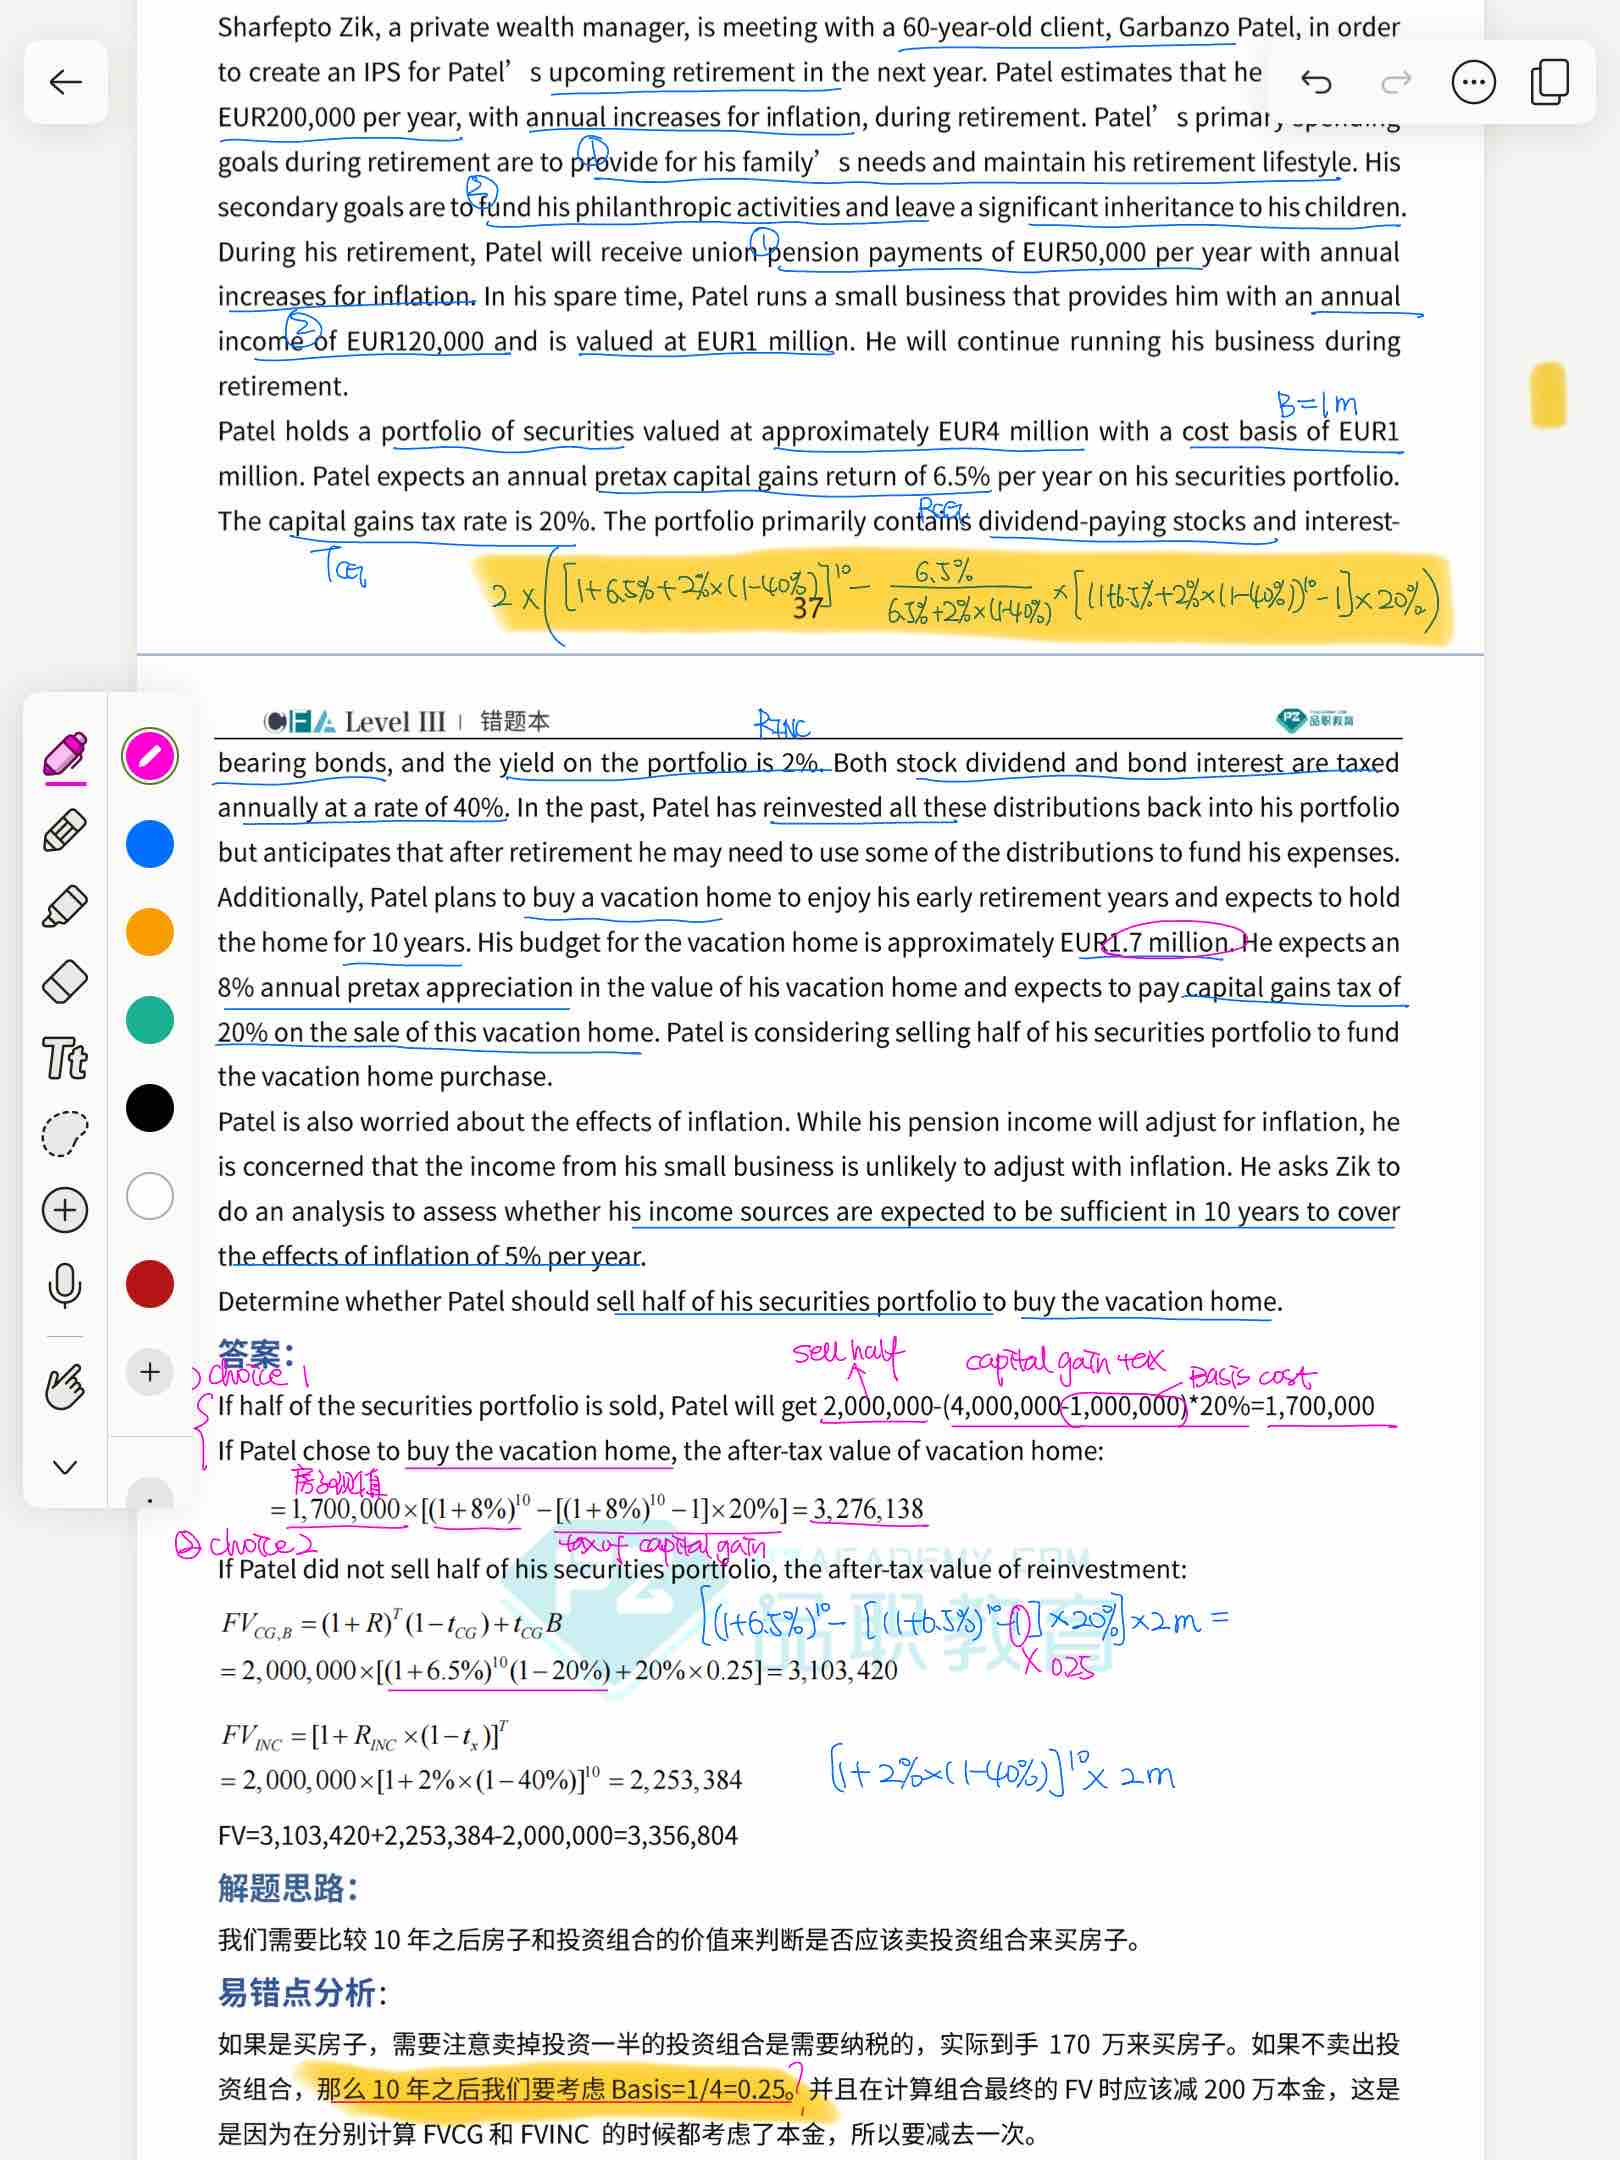 Sharfepto Zik, a private wealth manager, is meeting with a 60-year-old client, Garbanzo Patel, in order
to create an IPS for Patel’s upcoming retirement in the next year. Patel estimates that he
EUR200,000 per year, with annual increases for inflation, during retirement. Patel’s primary spending
①
goals during retirement are to provide for his family’s needs and maintain his retirement lifestyle. His
②
secondary goals are to fund his philanthropic activities and leave a significant inheritance to his children.
①
During his retirement, Patel will receive union pension payments of EUR50,000 per year with annual
increases for inflation. In his spare time, Patel runs a small business that provides him with an annual
②
income of EUR120,000 and is valued at EUR1 million. He will continue running his business during
retirement.
B=1m
Patel holds a portfolio of securities valued at approximately EUR4 million with a cost basis of EUR1
million. Patel expects an annual pretax capital gains return of 6.5% per year on his securities portfolio.
RCG
The capital gains tax rate is 20%. The portfolio primarily contains dividend-paying stocks and interest-
TCG
2×([1+6.5%+2%×(1-40%)]^10 - 6.5%/(6.5%+2%×(1-40%)) × [(1+6.5%+2%×(1-40%))^10-1]×20%)
37
CFA Level III | 错题本
RINC
PZ 品职教育
bearing bonds, and the yield on the portfolio is 2%. Both stock dividend and bond interest are taxed
annually at a rate of 40%. In the past, Patel has reinvested all these distributions back into his portfolio
but anticipates that after retirement he may need to use some of the distributions to fund his expenses.
Additionally, Patel plans to buy a vacation home to enjoy his early retirement years and expects to hold
the home for 10 years. His budget for the vacation home is approximately EUR1.7 million. He expects an
8% annual pretax appreciation in the value of his vacation home and expects to pay capital gains tax of
20% on the sale of this vacation home. Patel is considering selling half of his securities portfolio to fund
the vacation home purchase.
Patel is also worried about the effects of inflation. While his pension income will adjust for inflation, he
is concerned that the income from his small business is unlikely to adjust with inflation. He asks Zik to
do an analysis to assess whether his income sources are expected to be sufficient in 10 years to cover
the effects of inflation of 5% per year.
Determine whether Patel should sell half of his securities portfolio to buy the vacation home.
答案：
sell half capital gain tax Basis cost
choice 1
If half of the securities portfolio is sold, Patel will get 2,000,000-(4,000,000-1,000,000)*20%=1,700,000
If Patel chose to buy the vacation home, the after-tax value of vacation home:
房子现值
=1,700,000×[(1+8%)^10−[(1+8%)^10−1]×20%]=3,276,138
② choice 2
tax of capital gain
If Patel did not sell half of his securities portfolio, the after-tax value of reinvestment:
FV_CG,B =(1+R)^T(1−t_CG)+t_CG B
[(1+6.5%)^10-[(1+6.5%)^10-1]×20%]×2m=
×0.25
=2,000,000×[(1+6.5%)^10(1−20%)+20%×0.25]=3,103,420
FV_INC =[1+R_INC×(1−t_x)]^T
=2,000,000×[1+2%×(1−40%)]^10=2,253,384
[1+2%×(1-40%)]^10×2m
FV=3,103,420+2,253,384-2,000,000=3,356,804
PZ
ACADEMY.COM
品职教育
解题思路：
我们需要比较 10 年之后房子和投资组合的价值来判断是否应该卖投资组合来买房子。
易错点分析：
如果是买房子，需要注意卖掉投资一半的投资组合是需要纳税的，实际到手 170 万来买房子。如果不卖出投
资组合，那么 10 年之后我们要考虑 Basis=1/4=0.25。?并且在计算组合最终的 FV 时应该减 200 万本金，这是
是因为在分别计算 FVCG 和 FVINC 的时候都考虑了本金，所以要减去一次。
Tt